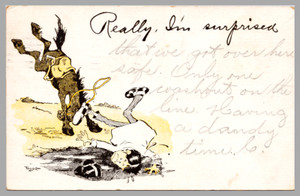 Really, I'm surprised
that we've got over here
safe. Only one
washout on the
line. Having
a dandy
time.